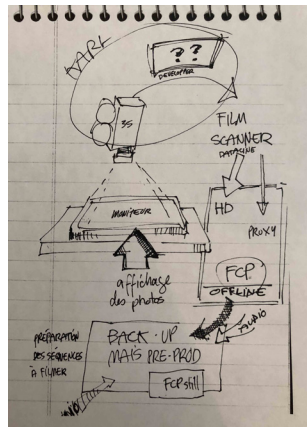 DARK
? ?
DEVELOPER
35
FILM
SCANNER
DATACINE
MONITEUR
HD
PROXY
affichage
des photos
FCP
OFFLINE
AUDIO
PRÉPARATION
DES SÉQUENCES
À FILMER
BACK-UP
MAIS PRE-PROD
FCP still